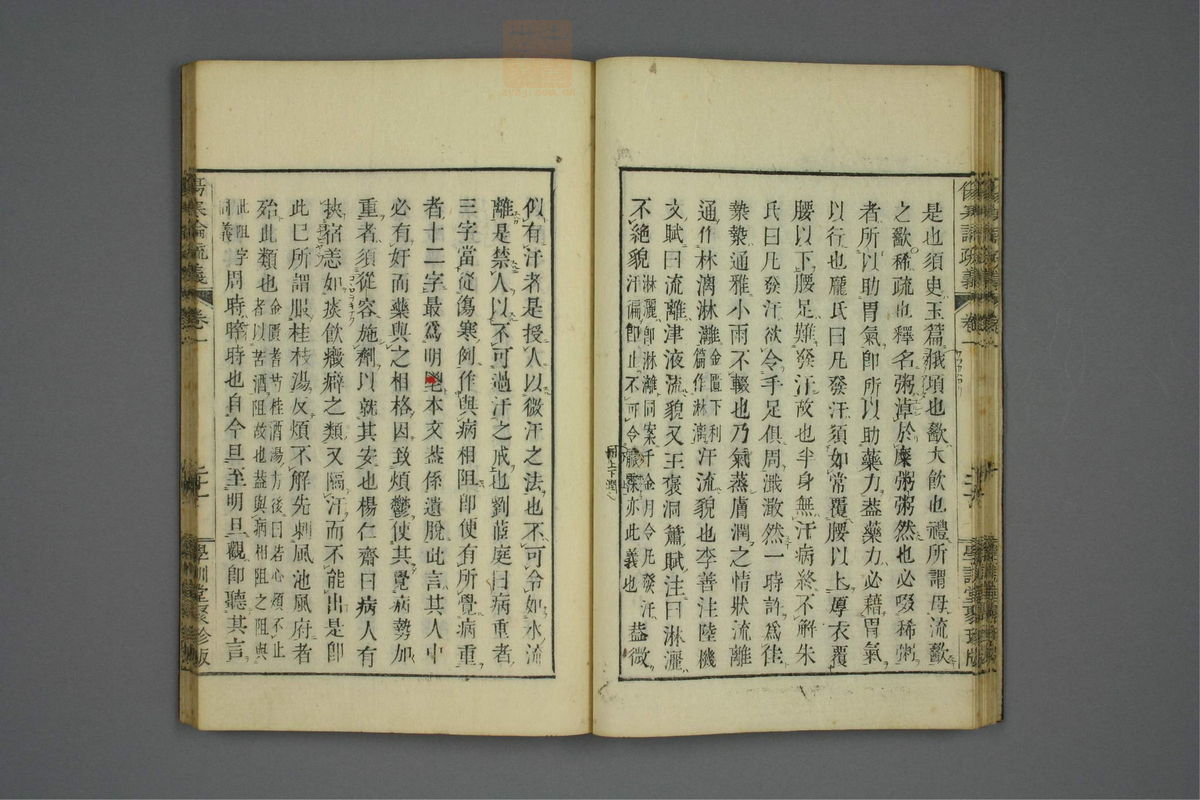 是也須史玉篇俄頃也歠大飲也禮所謂毋流歠
之歠稀疏也釋名粥淖於糜粥粥然也必啜稀粥
者所以助胃氣卽所以助藥力蓋藥力必藉胃氣
以行也龐氏曰凡發汗須如常覆腰以上厚衣覆
腰以下腰足難發汗故也半身無汗病終不解朱
氏曰凡發汗欲令手足俱周濈濈然一時許爲佳
漐漐通雅小雨不輟也乃氣蒸膚潤之情狀流離
通作林漓淋灕金匱下利篇作淋漓汗流貌也李善注陸機
文賦曰流離津液流貌又王褒洞簫賦注曰淋灑
不絕貌淋灑卽淋灕同案千金月令凡發汗汗徧卽止不可令亦此義也蓋微
同上下濶
似有汗者是授人以微汗之法也不可令如水流
離是禁人以不可過汗之戒也劉蓝庭曰病重者
三字當從傷寒例作與病相阻卽使有所覺病重
者十二字最爲明鬯本文蓋係遺脫此言其人中
必有奸而藥與之相格因致煩鬱使其覺病勢加
重者須從容施劑以就其安也楊仁齋曰病人有
挾宿恙如痰飲癥癖之類又隔汗而不能出是卽
此已所謂服桂枝湯反煩不解先刺風池風府者
殆此類也金匱耆芍桂酒湯方後曰若心煩不止者以苦酒阻故也蓋與病相阻之阻與
此阻字同義周時晬時也自今旦至明旦觀卽聽其言
傷寒論疏義
卷一
二十一
學訓堂聚珍版